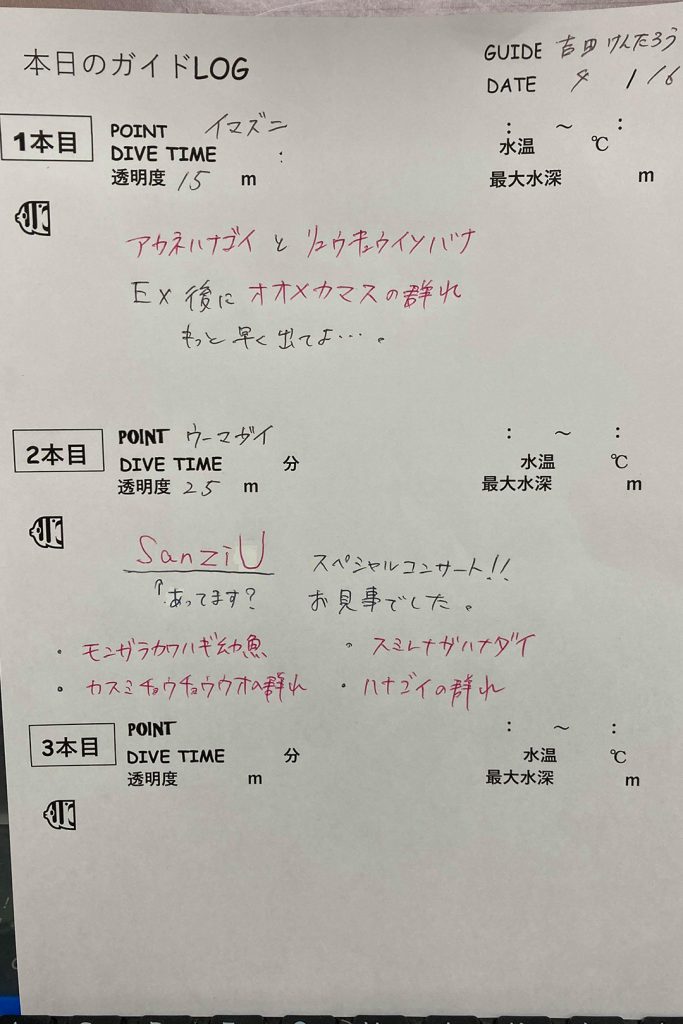 本日のガイドLOG
GUIDE 吉田けんたろう
DATE 4 / 16
1本目
POINT イマズニ
: ～ :
DIVE TIME :
水温 ℃
透明度 15 m
最大水深 m
アカネハナゴイ と リュウキュウイソバナ
Ex 後に オオメカマスの群れ
もっと早く出てよ…。
2本目
POINT ウーマガイ
: ～ :
DIVE TIME 分
水温 ℃
透明度 25 m
最大水深 m
SanziU スペシャルコンサート!!
↑あってます? お見事でした。
・モンガラカワハギ幼魚 ・スミレナガハナダイ
・カスミチョウチョウウオの群れ ・ハナゴイの群れ
3本目
POINT
: ～ :
DIVE TIME 分
水温 ℃
透明度 m
最大水深 m